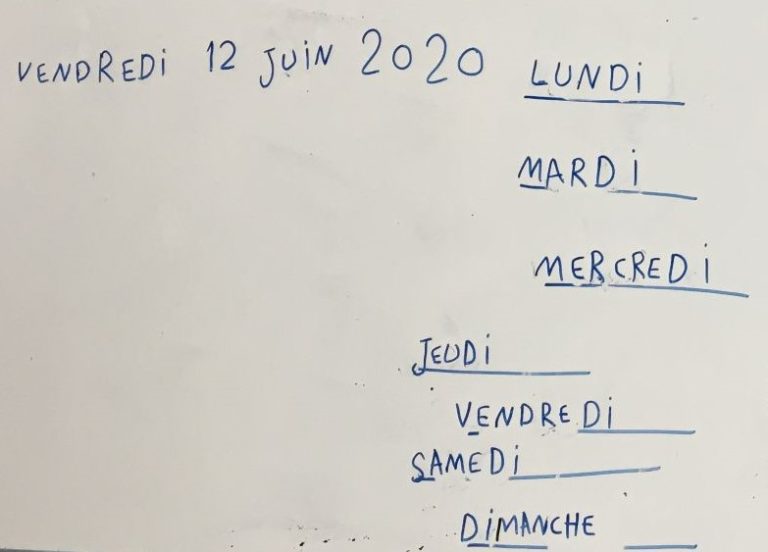 VENDREDi 12 JUiN 2020
LUNDi
MARDi
MERCREDi
JEUDi
VENDREDi
SAMEDi
DiMANCHE